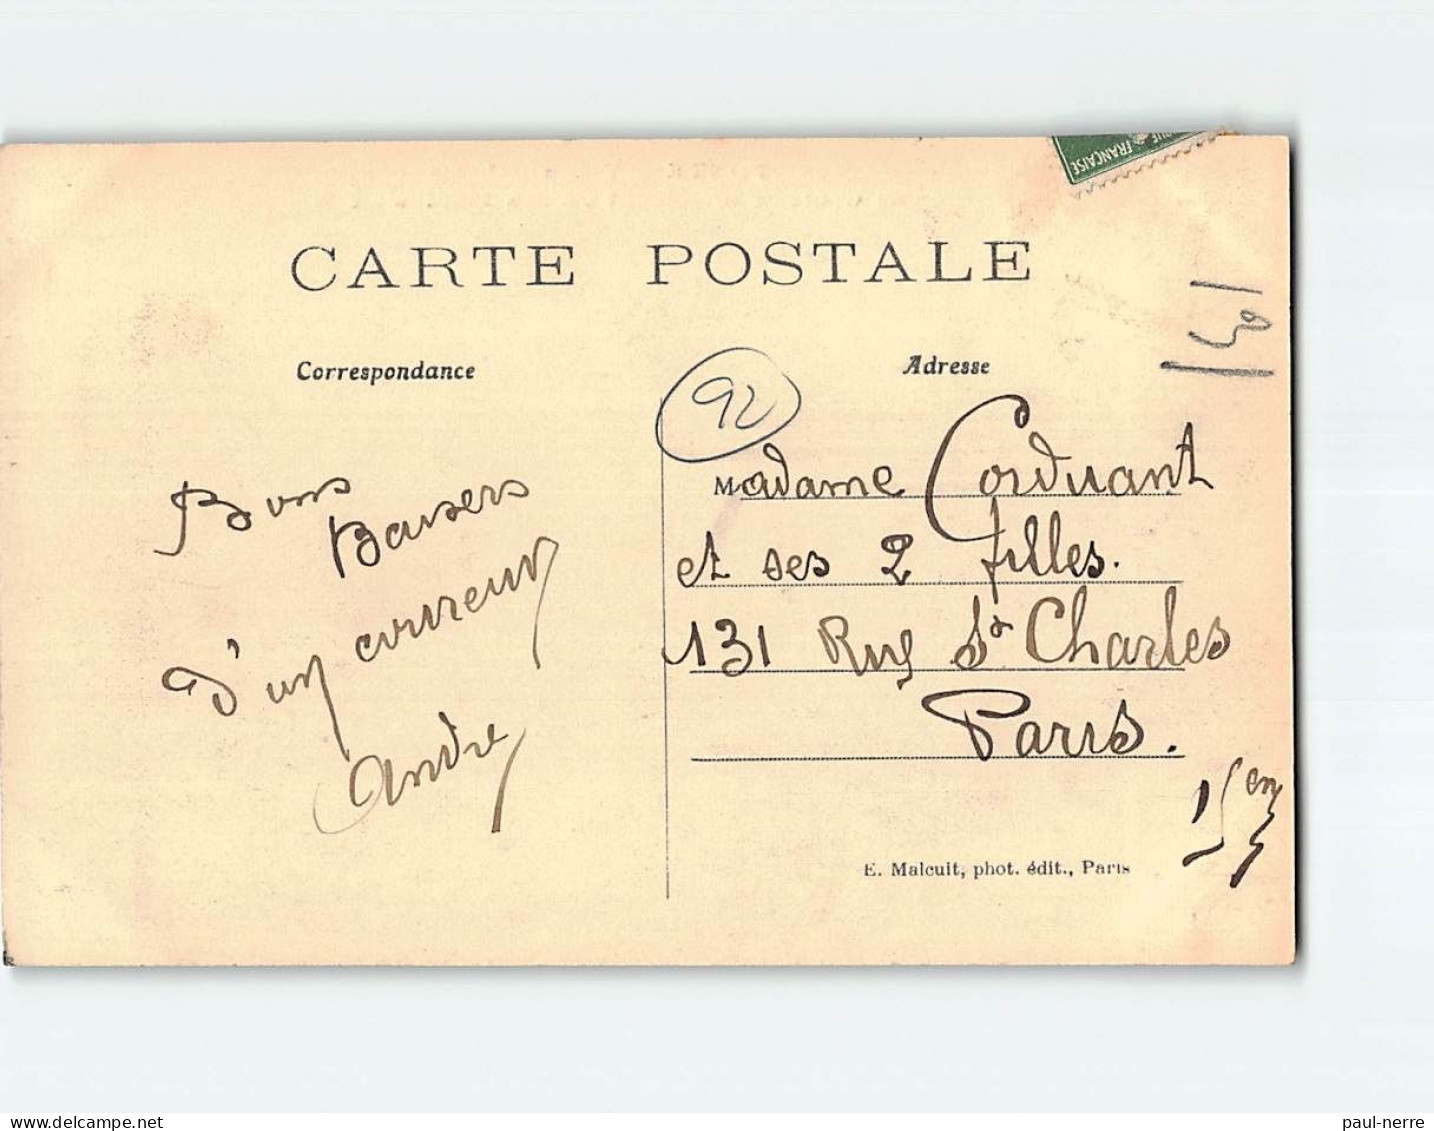 QUE
FRANCAISE
CARTE POSTALE
Correspondance
Adresse
92
131
Bons
Baisers
d'un coureur
André
Madame Corduant
et ses 2 filles.
131 Rue St Charles
Paris.
15 en
E. Malcuit, phot. édit., Paris
delcampe.net
paul-nerre